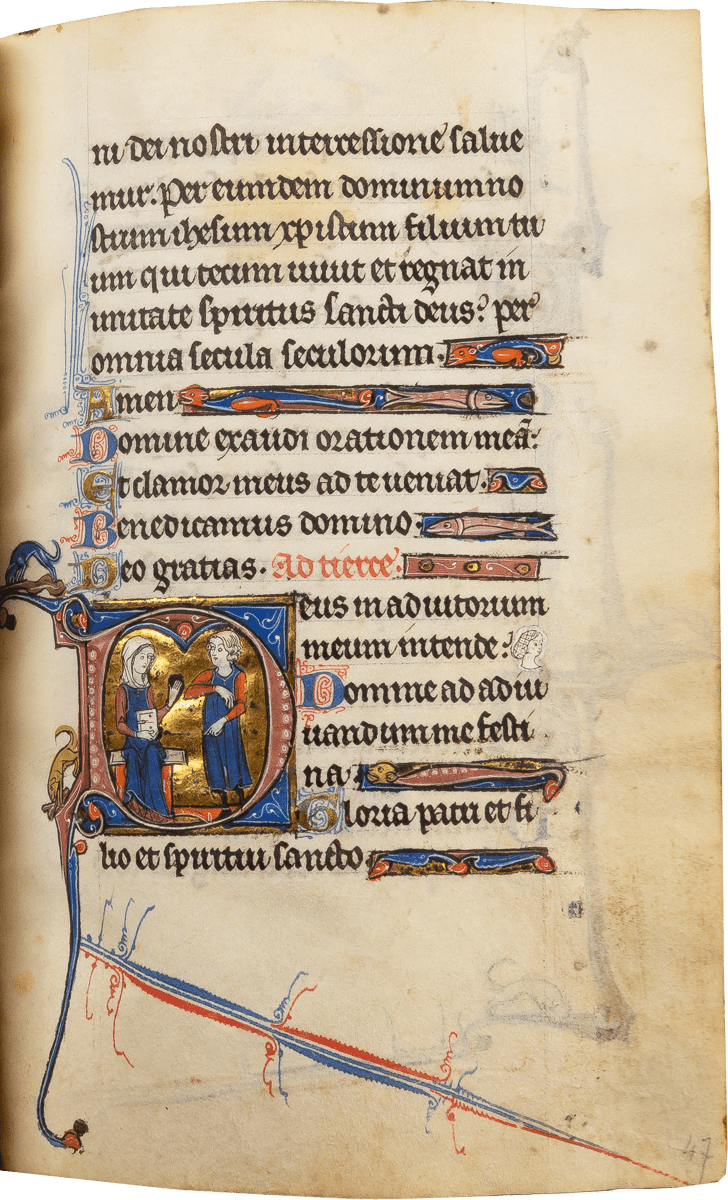 ni dei nostri intercessione salue
mur. Per eumdem dominum no
strum ihesum xpistum filium tu
um qui tecum uiuit et regnat in
unitate spiritus sancti deus? per
omnia secula seculorum.
Amen
Domine exaudi orationem meā:
Et clamor meus ad te ueniat.
Benedicamus domino.
Deo gratias. Ad tierce.
Deus in adiutorium
meum intende:
Domine ad adiu
uandum me festi
na
Gloria patri et fi
lio et spiritui sancto
47